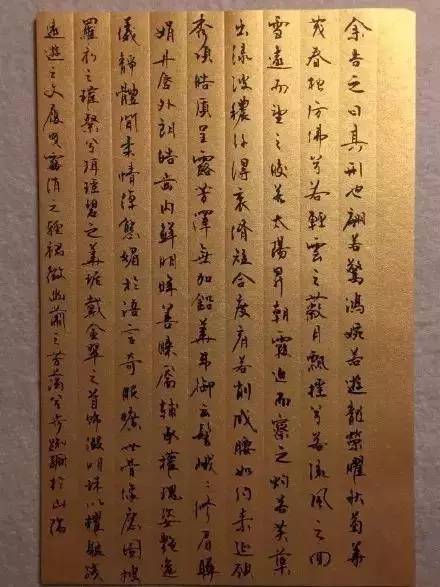 余告之曰其形也翩若驚鴻婉若遊龍榮曜秋菊華
茂春松仿佛兮若輕雲之蔽月飄飖兮若流風之回
雪遠而望之皎若太陽昇朝霞迫而察之灼若芙蕖
出淥波穠纖得衷脩短合度肩若削成腰如約素延頸
秀項皓質呈露芳澤無加鉛華弗御雲髻峨峨修眉聯
娟丹唇外朗皓齒內鮮明眸善睞靨輔承權瑰姿艷逸
儀靜體閒柔情綽態媚於語言奇服曠世骨像應圖披
羅衣之璀粲兮珥瑤碧之華琚戴金翠之首飾綴明珠以耀軀踐
遠遊之文履曳霧綃之輕裾微幽蘭之芳藹兮步踟躕於山隅